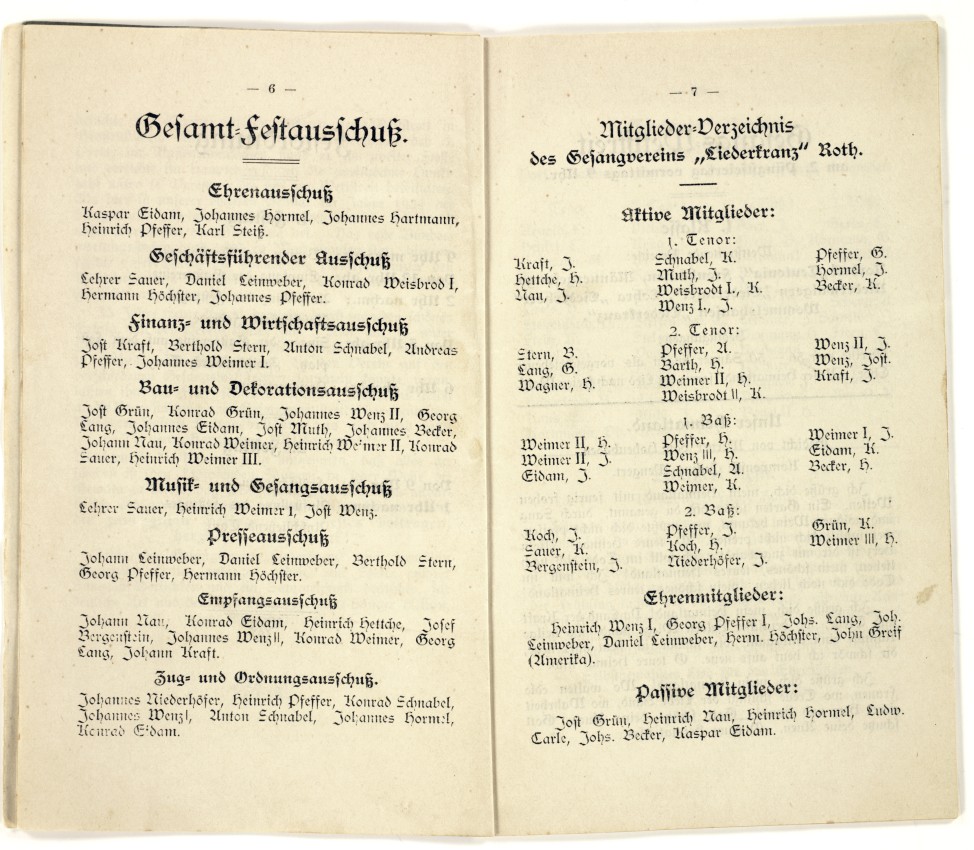 — 6 —
Gesamt-Festausschuß.
Ehrenausschuß
Kaspar Eidam, Johannes Hormel, Johannes Hartmann,
Heinrich Pfeffer, Karl Steiß.
Geschäftsführender Ausschuß
Lehrer Sauer, Daniel Leinweber, Konrad Weisbrod I,
Hermann Höchster, Johannes Pfeffer.
Finanz- und Wirtschaftsausschuß
Jost Kraft, Berthold Stern, Anton Schnabel, Andreas
Pfeffer, Johannes Weimer I.
Bau- und Dekorationsausschuß
Jost Grün, Konrad Grün, Johannes Wenz II, Georg
Lang, Johannes Eidam, Jost Muth, Johannes Becker,
Johann Nau, Konrad Weimer, Heinrich Weimer II, Konrad
Sauer, Heinrich Weimer III.
Musik- und Gesangsausschuß
Lehrer Sauer, Heinrich Weimer I, Jost Wenz.
Presseausschuß
Johann Leinweber, Daniel Leinweber, Berthold Stern,
Georg Pfeffer, Hermann Höchster.
Empfangsausschuß
Johann Nau, Konrad Eidam, Heinrich Hettche, Josef
Bergenstein, Johannes Wenz II, Konrad Weimer, Georg
Lang, Johann Kraft.
Zug- und Ordnungsausschuß.
Johannes Niederhöfer, Heinrich Pfeffer, Konrad Schnabel,
Johannes Wenz I, Anton Schnabel, Johannes Hormel,
Konrad Eidam.
— 7 —
Mitglieder-Verzeichnis
des Gesangvereins „Liederkranz" Roth.
Aktive Mitglieder:
1. Tenor:
Kraft, J. Schnabel, K. Pfeffer, G.
Hettche, H. Muth, J. Hormel, J.
Nau, J. Weisbrodt I., K. Becker, K.
Wenz I., J.
2. Tenor:
Stern, B. Pfeffer, A. Wenz II, J.
Lang, G. Barth, H. Wenz, Jost.
Wagner, H. Weimer II, H. Kraft, J.
Weisbrodt II, K.
1. Baß:
Weimer II, H. Pfeffer, H. Weimer I, J.
Weimer II, J. Wenz III, H. Eidam, K.
Eidam, J. Schnabel, A. Becker, H.
Weimer, K.
2. Baß:
Koch, J. Pfeffer, J. Grün, K.
Sauer, K. Koch, H. Weimer III, H.
Bergenstein, J. Niederhöfer, J.
Ehrenmitglieder:
Heinrich Wenz I, Georg Pfeffer I, Johs. Lang, Joh.
Leinweber, Daniel Leinweber, Herm. Höchster, John Greif
(Amerika).
Passive Mitglieder:
Jost Grün, Heinrich Nau, Heinrich Hormel, Ludw.
Carle, Johs. Becker, Kaspar Eidam.